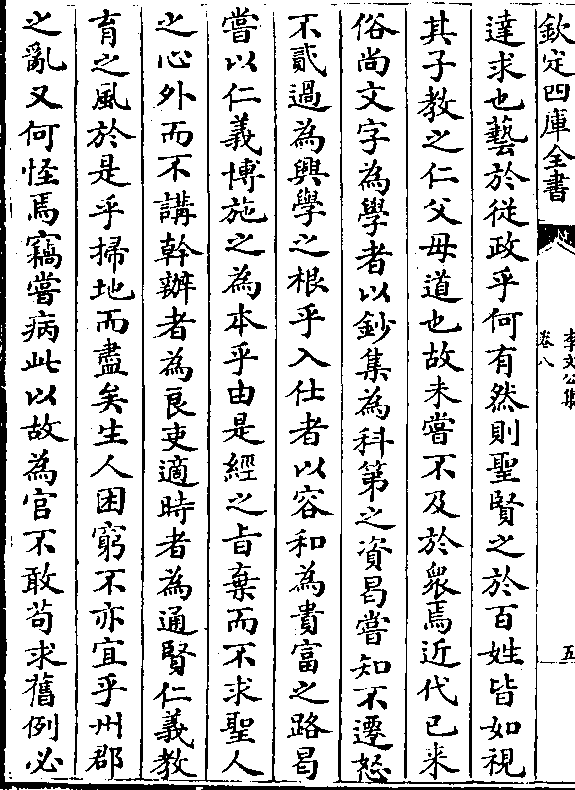 欽定四庫全書
李文公集
卷八
五
達求也藝於從政乎何有然則聖賢之於百姓皆如視
其子教之仁父母道也故未嘗不及於衆焉近代已来
俗尚文字為學者以鈔集為科第之資曷嘗知不遷怒
不貳過為興學之根乎入仕者以容和為貴富之路曷
嘗以仁義博施之為本乎由是經之旨棄而不求聖人
之心外而不講幹辦者為良吏適時者為通賢仁義教
育之風於是乎掃地而盡矣生人困窮不亦宜乎州郡
之亂又何怪焉竊嘗病此以故為官不敢苟求舊例必